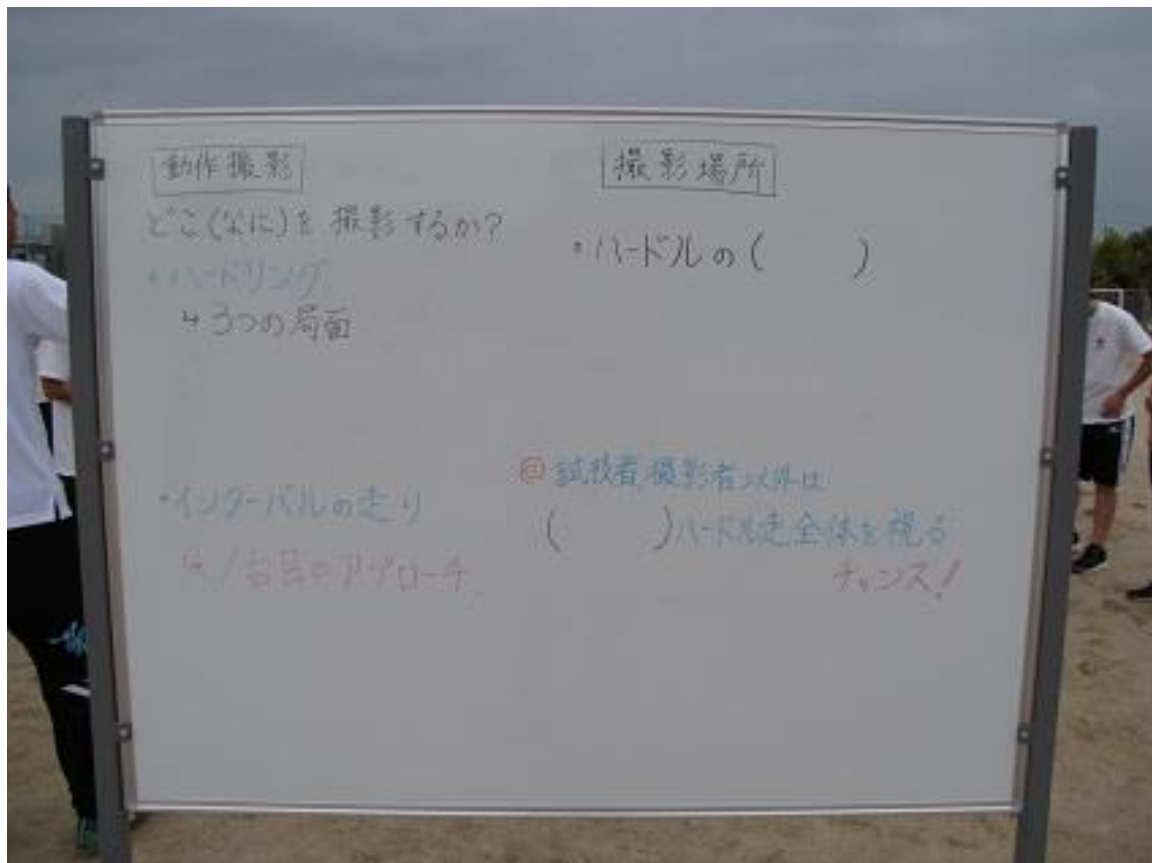 動作撮影
どこ(なに)を撮影するか?
・ハードリング
↳3つの局面
・インターバルの走り
↳1台目のアプローチ
撮影場所
・ハードルの(　　)
試技者,撮影者以外は
(　　)ハードル走全体を視る
チャンス!